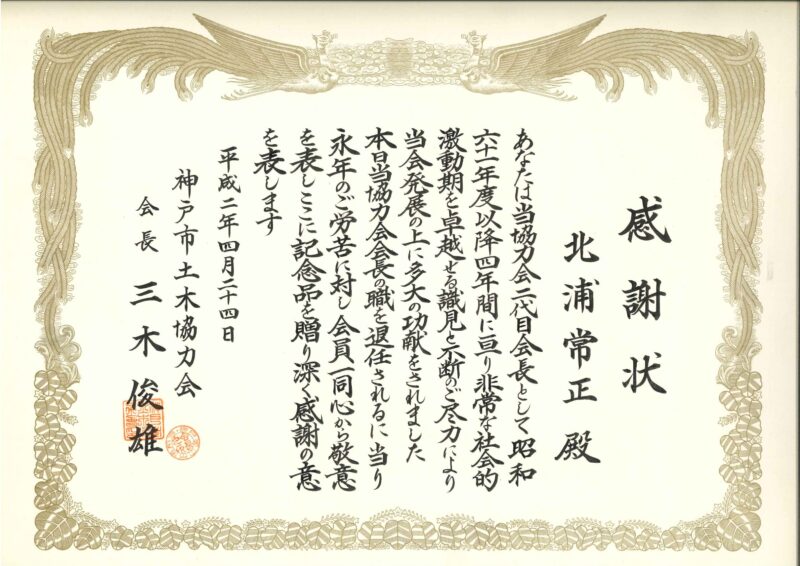 感謝状
北浦常正殿
あなたは当協力会二代目会長として昭和
六十一年度以降四年間に亘り非常な社会的
激動期を卓越せる識見と不断のご尽力により
当会発展の上に多大の功献をされました
本日当協力会会長の職を退任されるに当り
永年のご労苦に対し会員一同心から敬意
を表しここに記念品を贈り深く感謝の意
を表します
平成二年四月二十四日
神戸市土木協力会
会長 三木俊雄